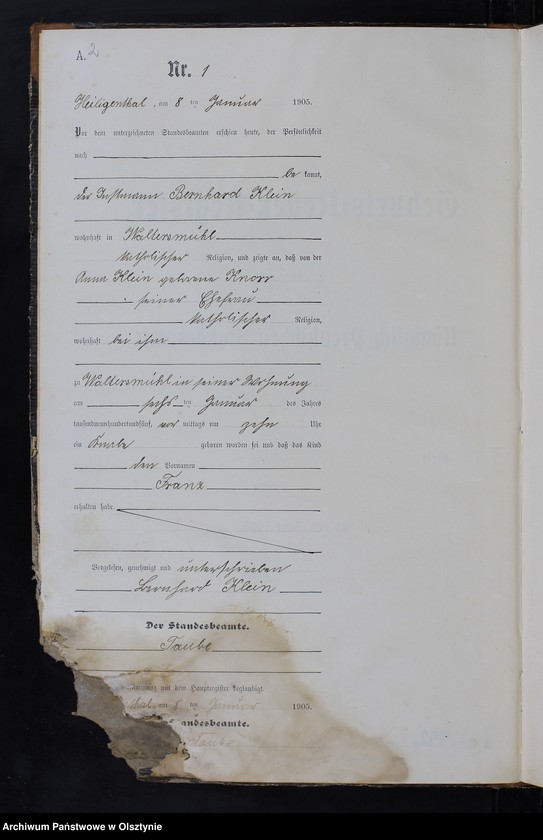 A. 2
Nr. 1
Heiligenthal, am 8 ten Januar 1905.
Vor dem unterzeichneten Standesbeamten erschien heute, der Persönlichkeit
nach
be kannt,
der Instmann Bernhard Klein
wohnhaft in Waltersmühl
katholischer Religion, und zeigte an, daß von der
Anna Klein geborene Knorr
seiner Ehefrau
katholischer Religion,
wohnhaft bei ihm
zu Waltersmühl in seiner Wohnung
am sechs ten Januar des Jahres
tausendneunhundertundfünf, vor mittags um zehn Uhr
ein Knabe geboren worden sei und daß das Kind
den Vornamen
Franz
erhalten habe.
Vorgelesen, genehmigt und unterschrieben
Bernhard Klein
Der Standesbeamte.
Taube
mit dem Hauptregister beglaubigt.
thal, am 8 ten Januar 1905.
andesbeamte.
Taube
Archiwum Państwowe w Olsztynie